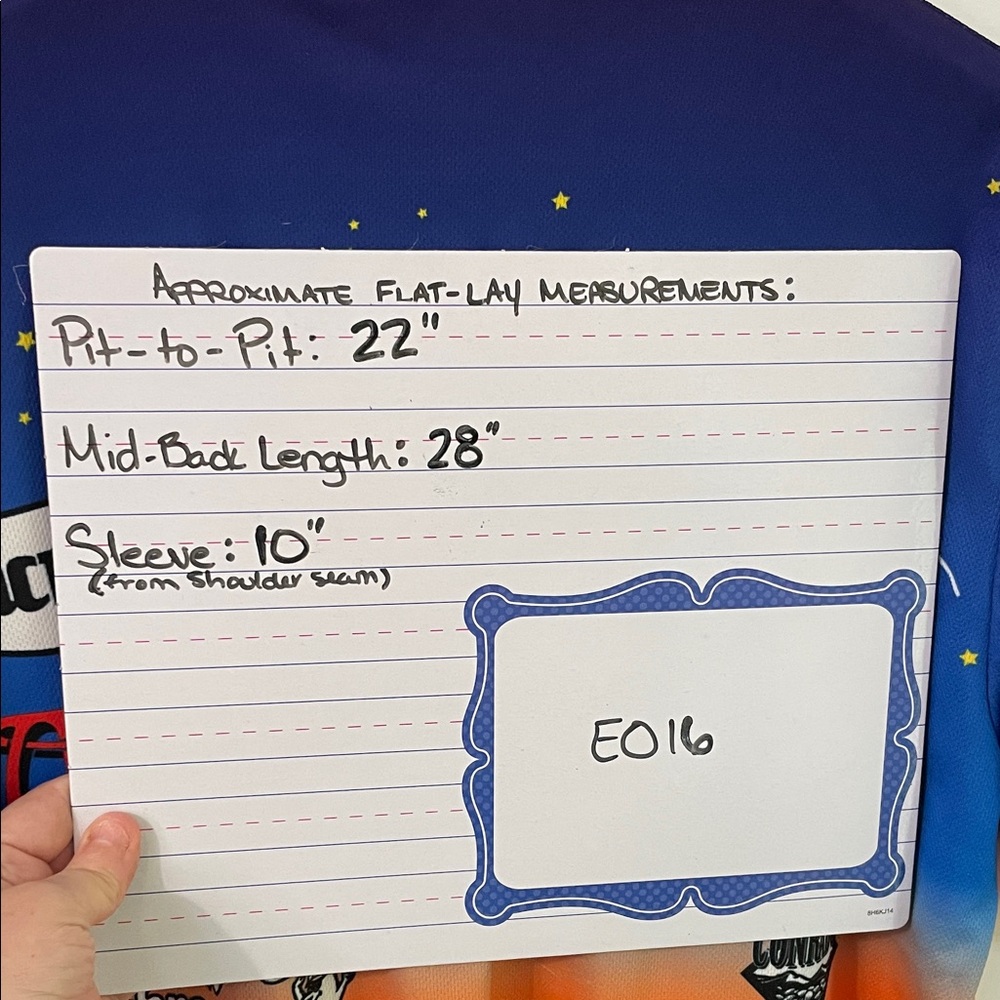 APPROXIMATE FLAT-LAY MEASUREMENTS:
Pit-to-Pit: 22"
Mid-Back Length: 28"
Sleeve: 10"
(from shoulder seam)
EO16
8H6KJ14